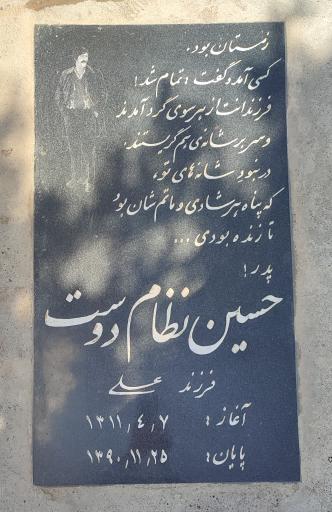 زمستان بود.
کسی آمد و گفت: تمام شد!
فرزندانت از هر سوی گرد آمدند
و سر بر شانه‌ی هم گریستند.
در نبود شانه‌های تو،
که پناه هر شادی و ماتم شان بود
تا زنده بودی ...
پدر!
حسین نظام دوست
فرزند علی
آغاز: ۱۳۱۱٫۴٫۷
پایان: ۱۳۹۰٫۱۱٫۲۵